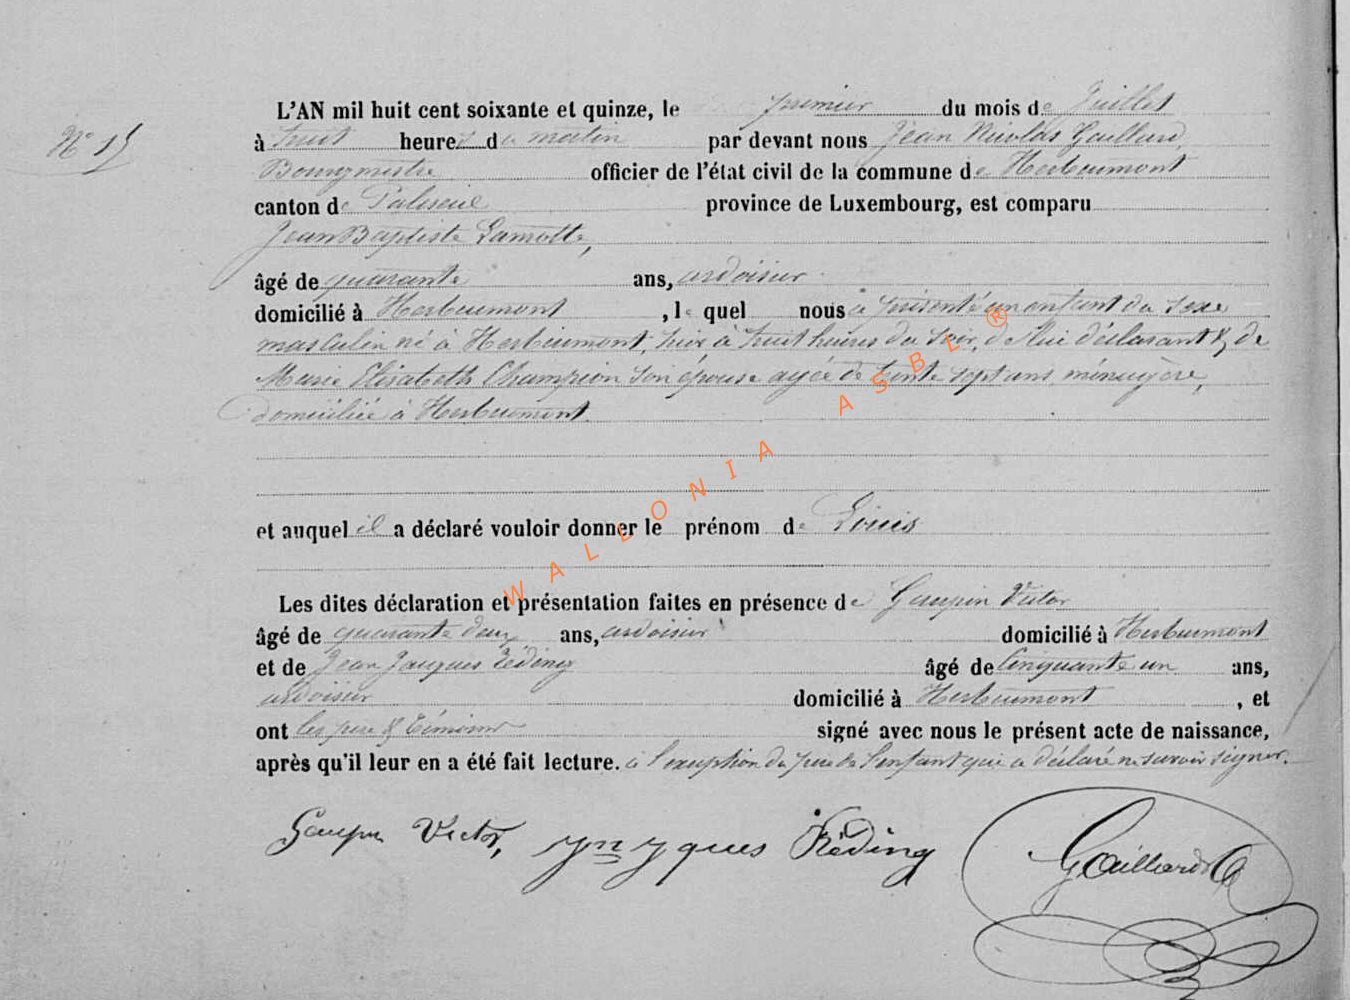 L'AN mil huit cent soixante et quinze, le premier du mois de Juillet
N° 15
à huit heures du matin par devant nous Jean Nicolas Gaillard,
Bourgmestre officier de l'état civil de la commune de Herbeumont
canton de Paliseul province de Luxembourg, est comparu
Jean Baptiste Lamotte,
âgé de quarante ans, ardoisier
domicilié à Herbeumont, le quel nous a présenté un enfant du sexe
masculin né à Herbeumont, hier à huit heures du soir, de lui déclarant & de
Marie Elisabeth Champion son épouse agée de trente sept ans, ménagère,
domiciliée à Herbeumont.
et auquel il a déclaré vouloir donner le prénom de Louis
Les dites déclaration et présentation faites en présence de Gaupin Victor
âgé de quarante deux ans, ardoisier domicilié à Herbeumont
et de Jean Jacques Réding âgé de Cinquante un ans,
ardoisier domicilié à Herbeumont, et
ont les père & témoins signé avec nous le présent acte de naissance,
après qu'il leur en a été fait lecture. à l'exception du père de l'enfant qui a déclaré ne savoir signer.
Gaupin Victor, Réding Gaillard
WALLONIA ASBL ®